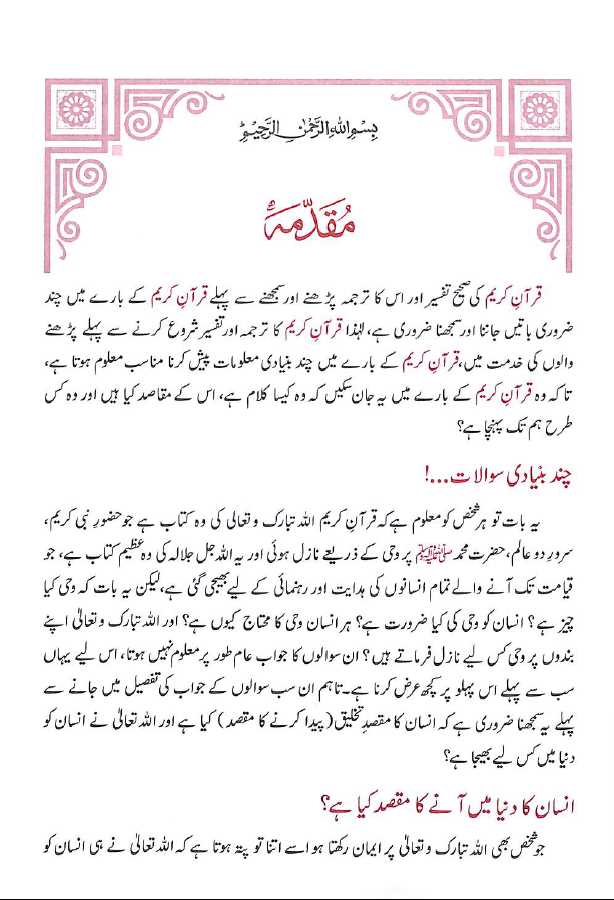 بِسْمِ اللہِ الرَّحْمٰنِ الرَّحِیْمِ
مُقَدِّمَہ
قرآنِ کریم کی صحیح تفسیر اور اس کا ترجمہ پڑھنے اور سمجھنے سے پہلے قرآنِ کریم کے بارے میں چند
ضروری باتیں جاننا اور سمجھنا ضروری ہے، لہٰذا قرآنِ کریم کا ترجمہ اور تفسیر شروع کرنے سے پہلے پڑھنے
والوں کی خدمت میں، قرآنِ کریم کے بارے میں چند بنیادی معلومات پیش کرنا مناسب معلوم ہوتا ہے،
تاکہ وہ قرآنِ کریم کے بارے میں یہ جان سکیں کہ وہ کیسا کلام ہے، اس کے مقاصد کیا ہیں اور وہ کس
طرح ہم تک پہنچا ہے؟
چند بنیادی سوالات...!
یہ بات تو ہر شخص کو معلوم ہے کہ قرآنِ کریم اللہ تبارک و تعالی کی وہ کتاب ہے جو حضور نبی کریم،
سرورِ دو عالم، حضرت محمد ﷺ پر وحی کے ذریعے نازل ہوئی اور یہ اللہ جل جلالہ کی وہ عظیم کتاب ہے، جو
قیامت تک آنے والے تمام انسانوں کی ہدایت اور رہنمائی کے لیے بھیجی گئی ہے، لیکن یہ بات کہ وحی کیا
چیز ہے؟ انسان کو وحی کی کیا ضرورت ہے؟ ہر انسان وحی کا محتاج کیوں ہے؟ اور اللہ تبارک و تعالیٰ اپنے
بندوں پر وحی کس لیے نازل فرماتے ہیں؟ ان سوالوں کا جواب عام طور پر معلوم نہیں ہوتا، اس لیے یہاں
سب سے پہلے اس پہلو پر کچھ عرض کرنا ہے۔ تاہم ان سب سوالوں کے جواب کی تفصیل میں جانے سے
پہلے یہ سمجھنا ضروری ہے کہ انسان کا مقصدِ تخلیق (پیدا کرنے کا مقصد) کیا ہے اور اللہ تعالیٰ نے انسان کو
دنیا میں کس لیے بھیجا ہے؟
انسان کا دنیا میں آنے کا مقصد کیا ہے؟
جو شخص بھی اللہ تبارک و تعالیٰ پر ایمان رکھتا ہو اسے اتنا تو پتہ ہوتا ہے کہ اللہ تعالیٰ نے ہی انسان کو